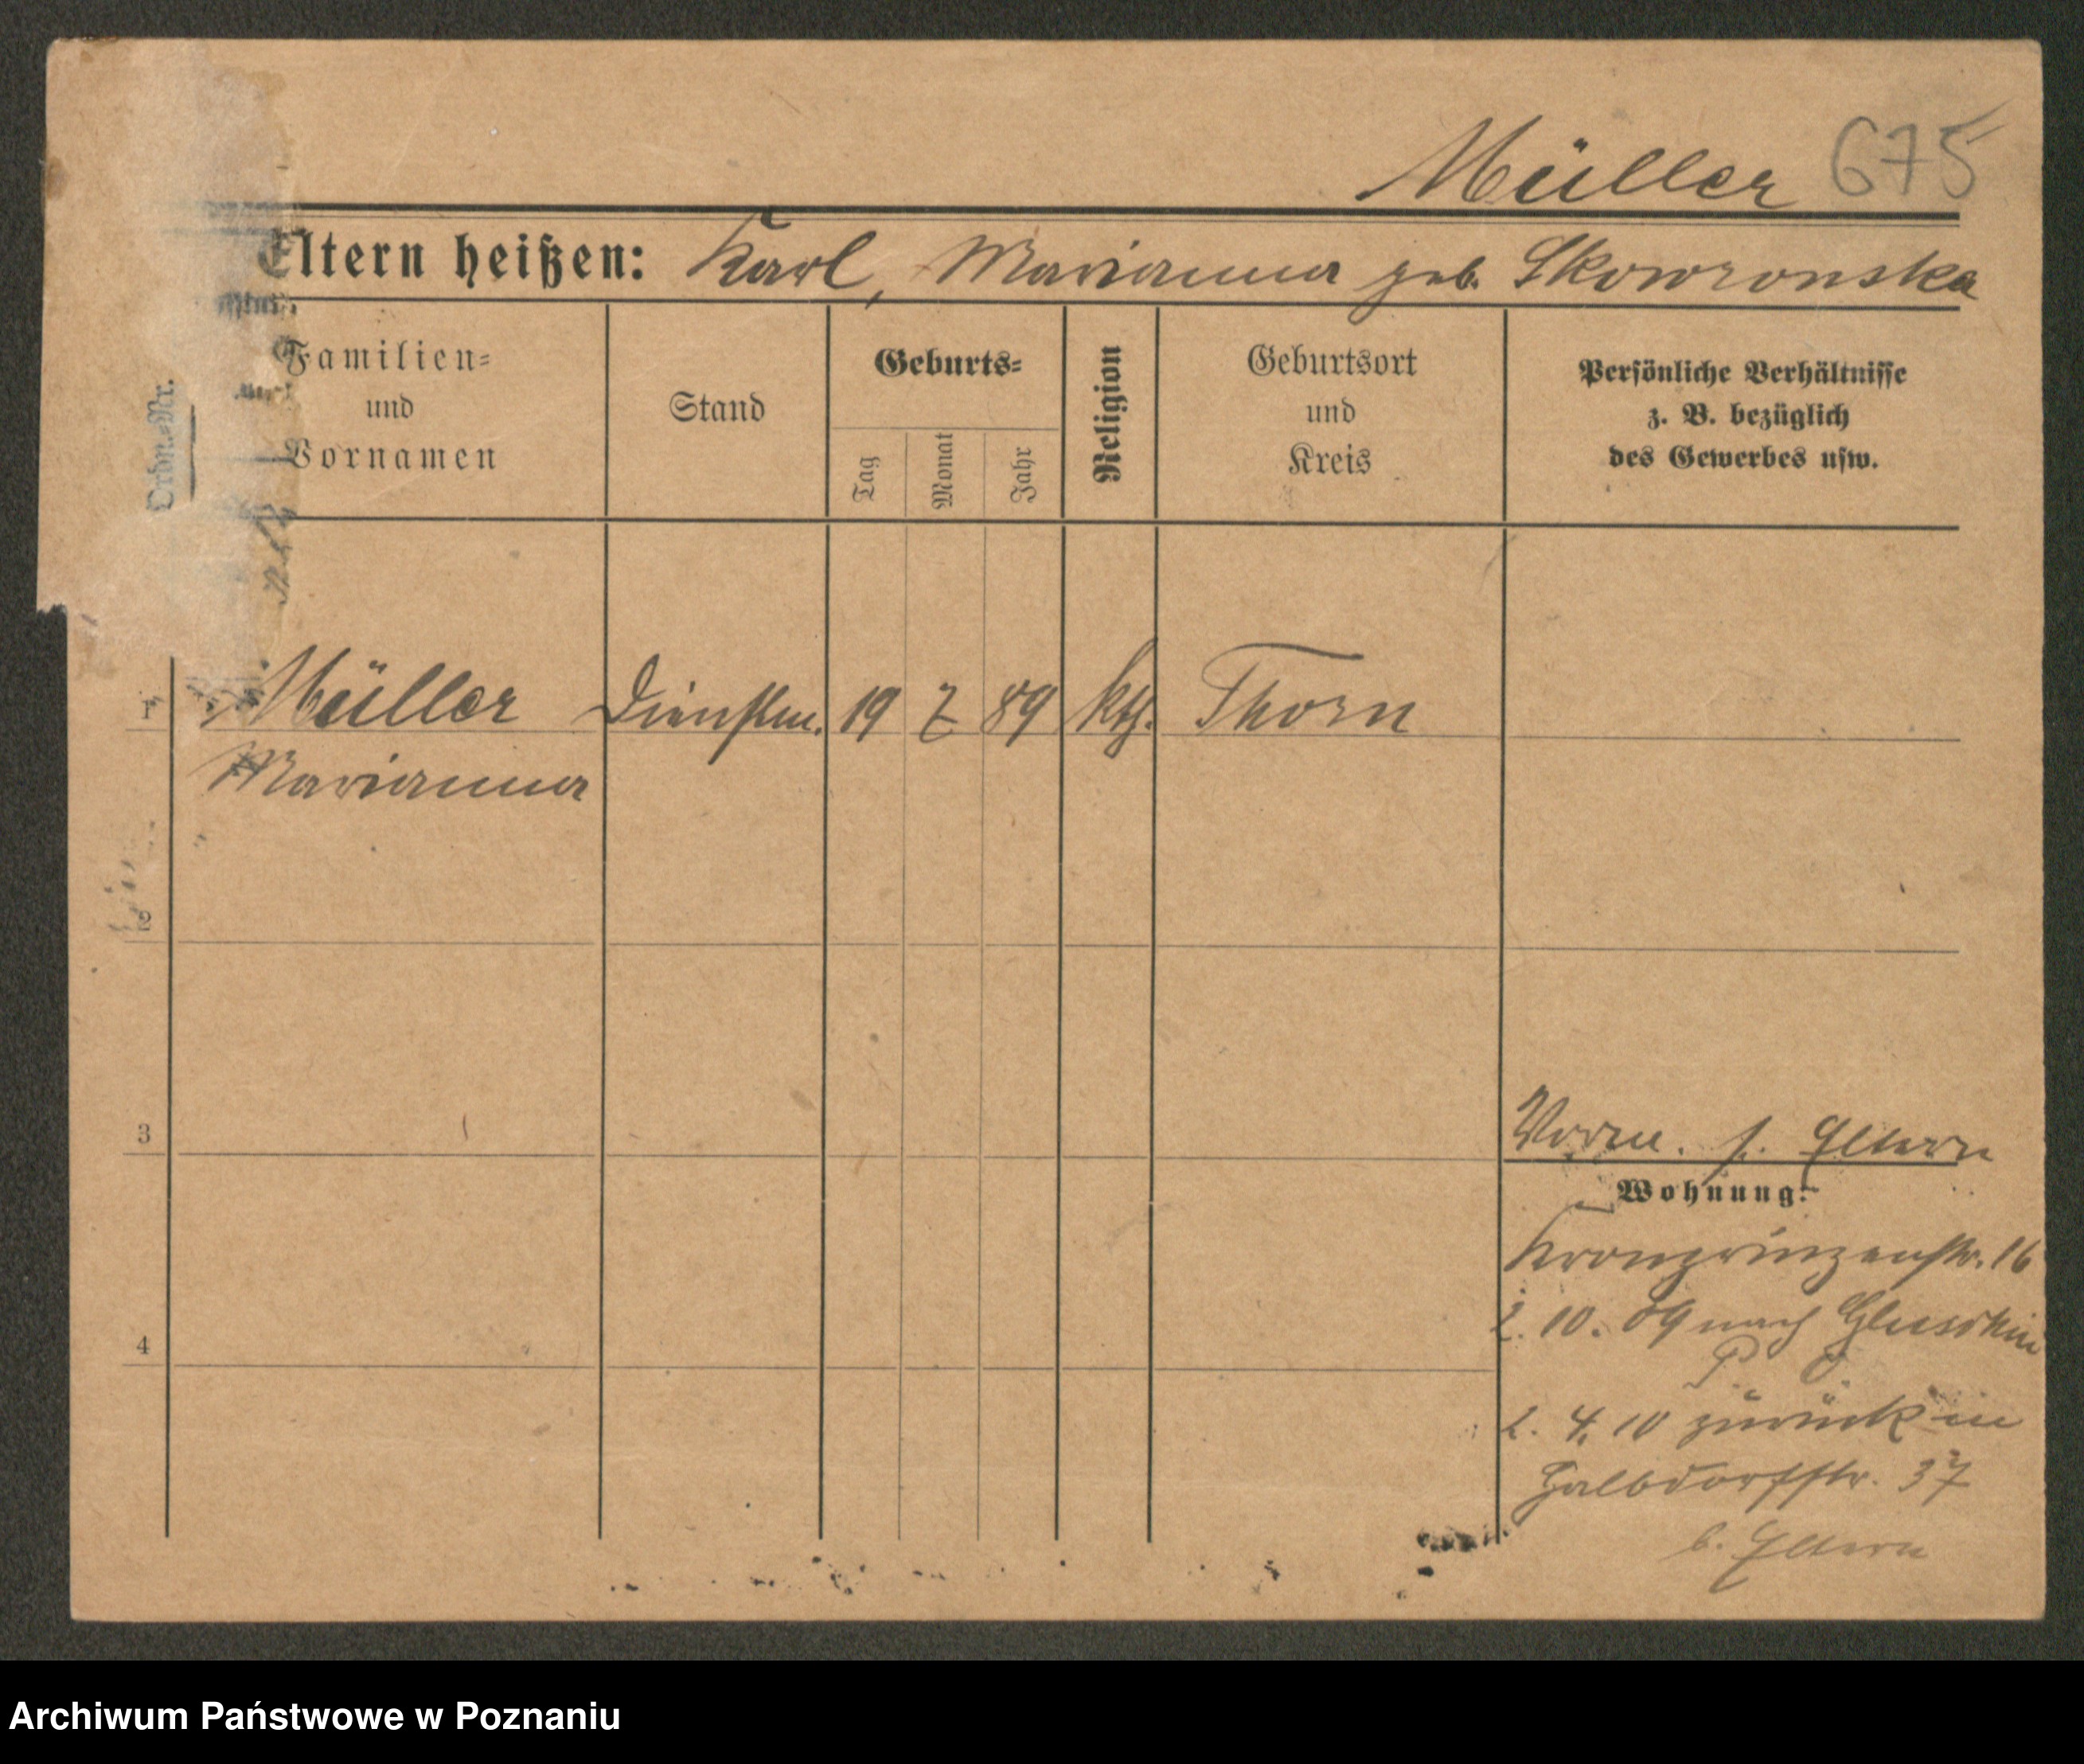 Müller 675
Eltern heißen: Karl, Marianna geb. Skowronska
Ordn.-Nr.
Familien-
und
Vornamen
Stand
Geburts-
Tag
Monat
Jahr
Religion
Geburtsort
und
Kreis
Persönliche Verhältnisse
z. B. bezüglich
des Gewerbes usw.
1 Müller Dienstm. 19 7 89 kth. Thorn
Marianna
2
3
Vorm. s. Eltern
Wohnung:
Kronprinzenstr. 16
2. 10. 09 nach
4
2. 4. 10 zurück in
Halbdorfstr. 37
b. Eltern
Archiwum Państwowe w Poznaniu